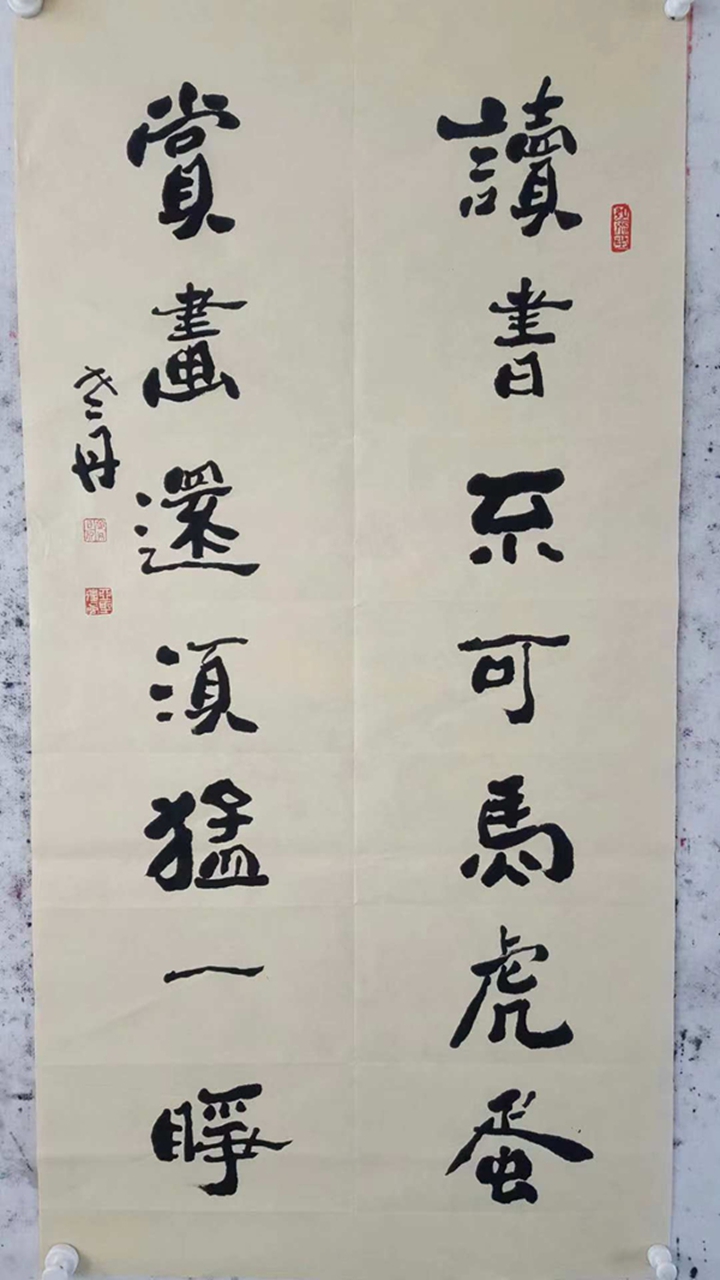 讀書不可馬虎蛋
賞畫還須猛一睜